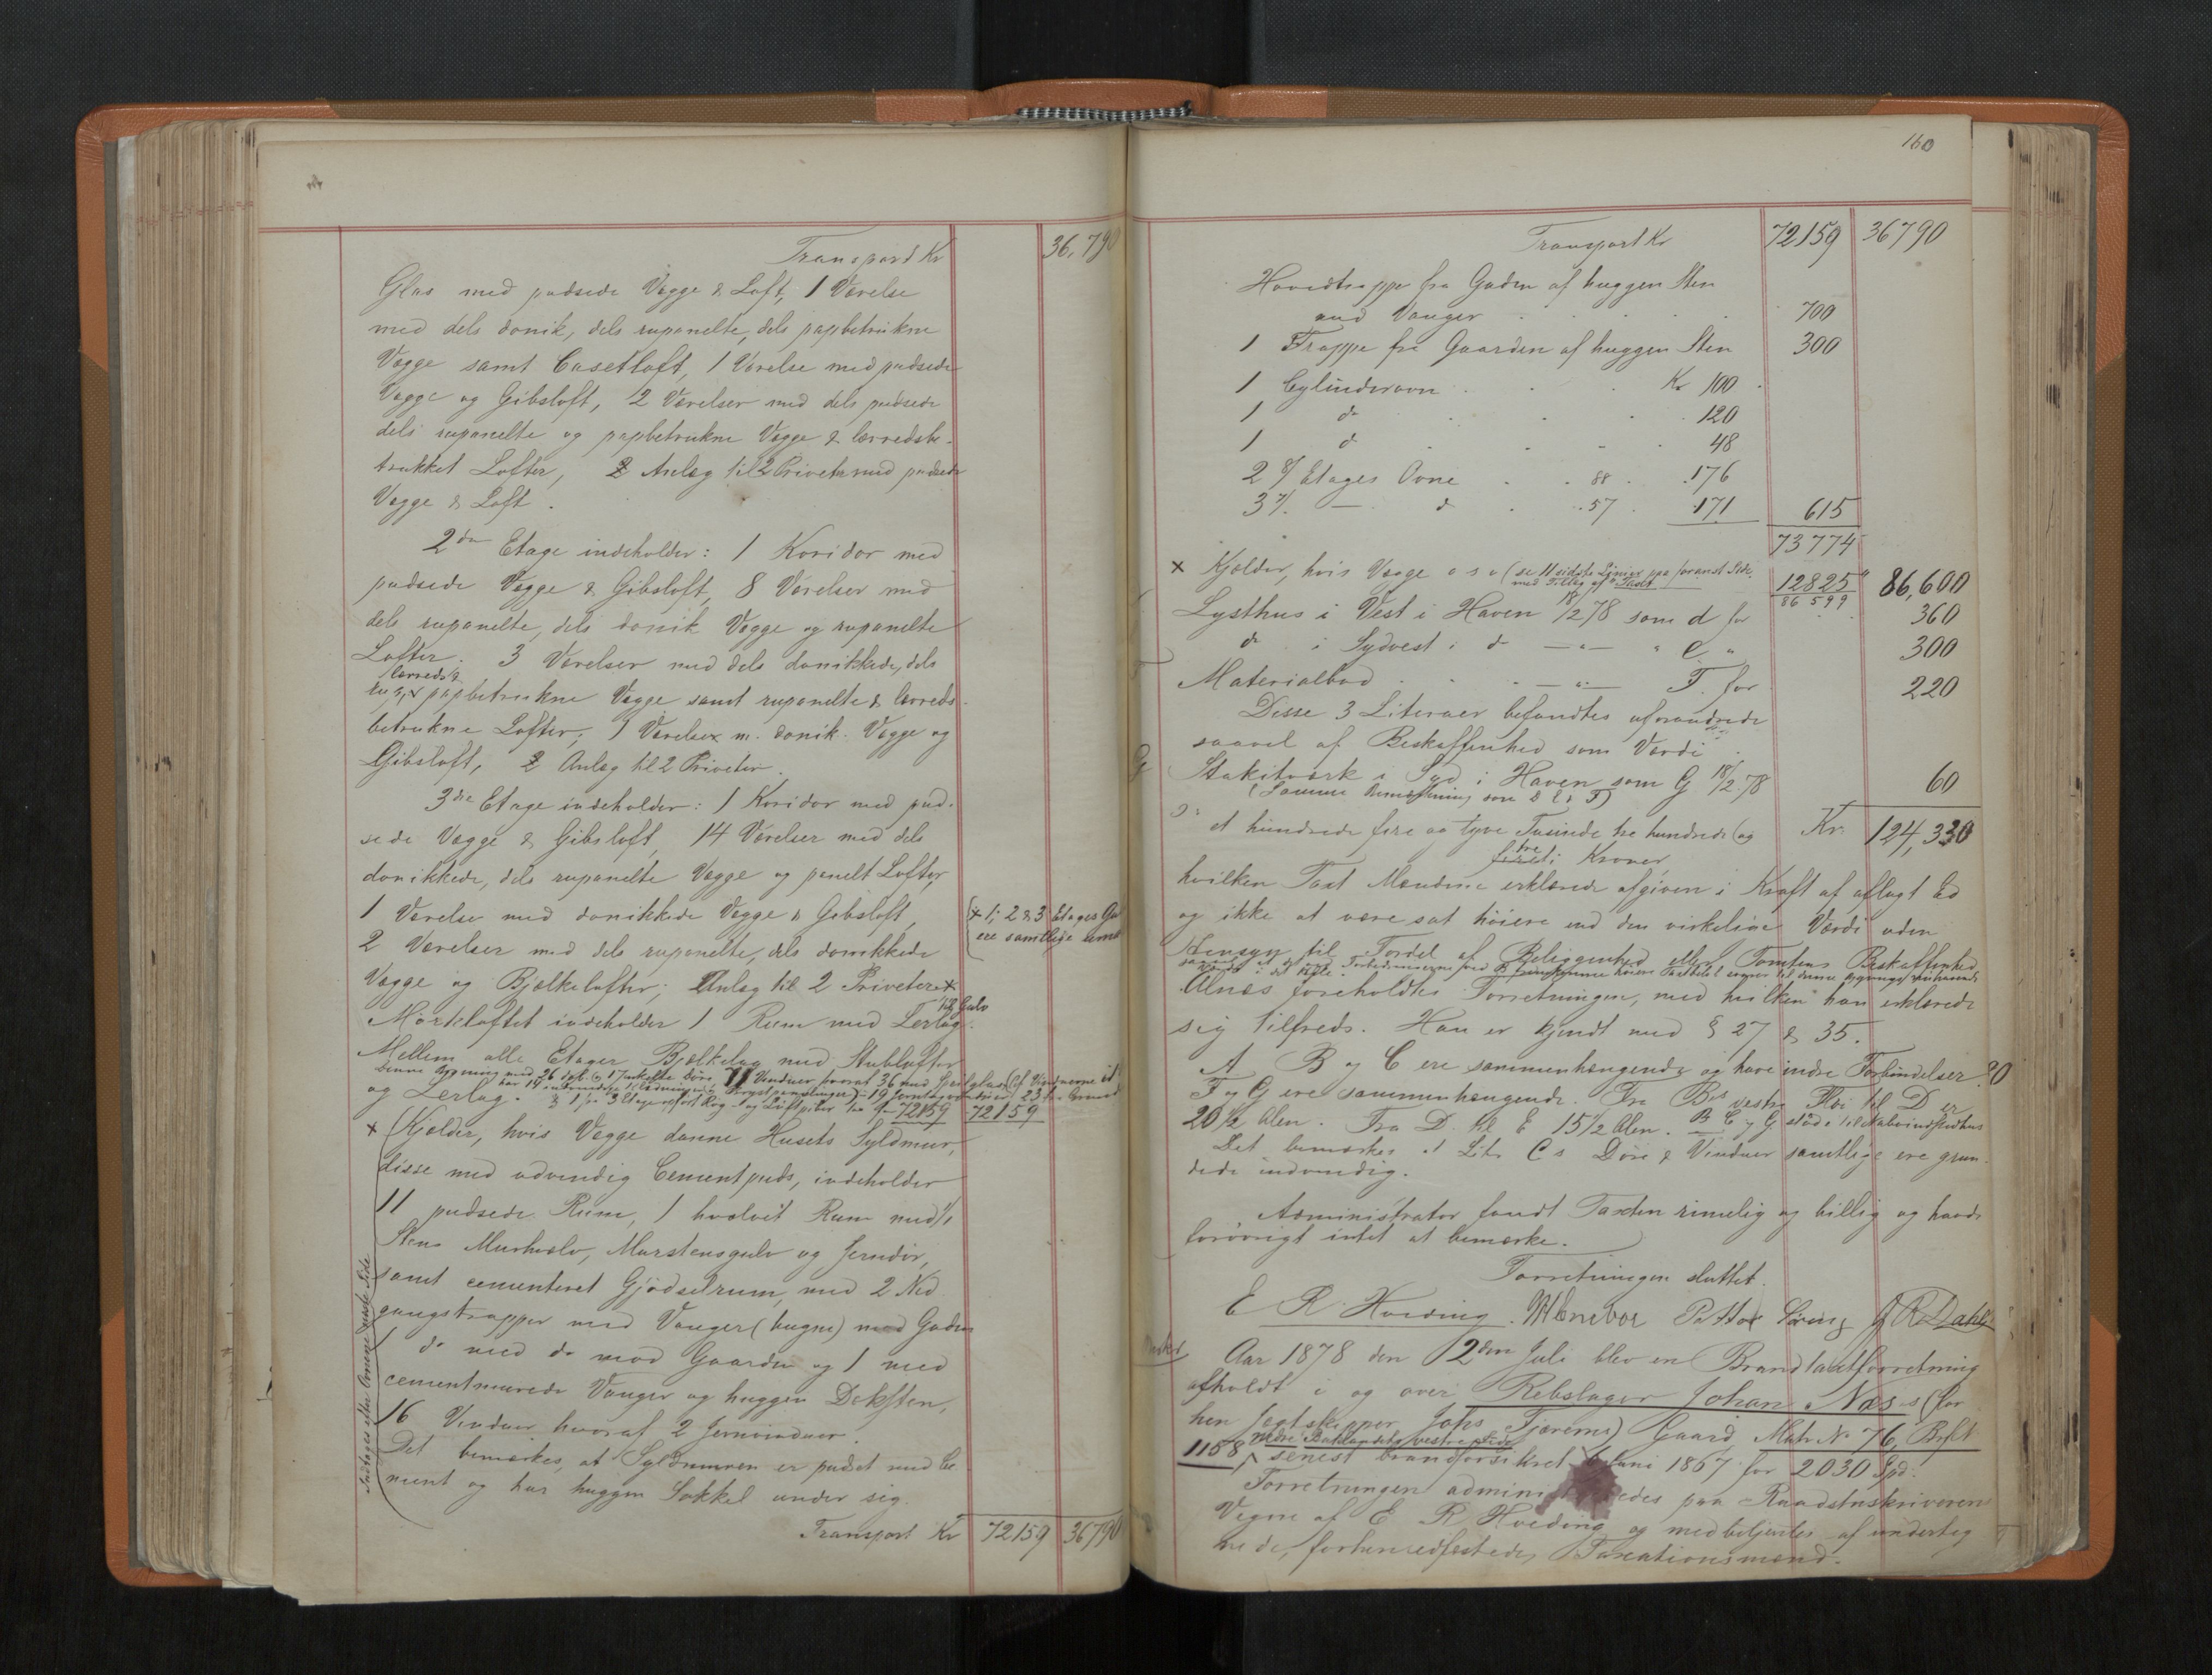 Transport Kr 36,790
Glas med pudsede Vægge & Loft, 1 Værelse
med dels donik, dels rupanelte, dels papbetrukne
Vægge samt Casetloft, 1 Værelse med pudsede
Vægge og Gibsloft, 2 Værelser med dels pudsede
dels rupanelte og papbetrukne Vægge & lærredsbe-
trukket Lofter, 2 Anlæg til 2 Priveter med pudsede
Vægge & Loft.
2den Etage indeholder: 1 Koridor med
pudsede Vægge & Gibsloft, 8 Værelser med
dels rupanelte, dels donik Vægge og rupanelte
Lofter. 3 Værelser med dels donikkede, dels
lærreds &
papbetrukne Vægge samt rupanelte & lærreds-
betrukne Lofter; 1 Værelse m. donik. Vægge og
Gibsloft, 2 Anlæg til 2 Priveter.
3die Etage indeholder: 1 Koridor med pud-
sede Vægge & Gibsloft, 14 Værelser med dels
donikkede, dels rupanelte Vægge og panelt Lofter,
1 Værelse med donikkede Vægge & Gibsloft,
2 Værelser med dels rupanelte, dels donikkede
(x 1, 2 & 3 Etages
ere samtlige
Vægge og Bjælkelofter; Anlæg til 2 Priveter x
Mørkloftet indeholder 1 Rum med Lerlag.
og Gulv
Mellem alle Etager Bjælkelag med Stubblofter
Denne Bygning med 26 dob. og 1 enkelte Døre, 71 Vinduer hvoraf 36 med Speilglas
og Lerlag. 72159 72159
x (Kjælder, hvis Vægge danne Husets Syldmur,
disse med udvendig Cementpuds, indeholder
11 pudsede Rum, 1 hvælvet Rum med 1/1
Stens Murhvælv, Murstensgulv og Jerndør,
samt cementeret Gjødselrum, med 2 Ned-
gangstrapper med Vanger (hugne) mod Gaden
1 do med do mod Gaarden og 1 med
cementmurede Vanger og huggen Dæksten,
16 Vinduer hvoraf 2 Jernvinduer.
Det bemærkes, at Syldmuren er pudset med Ce-
ment og har huggen Sokkel under sig.
Indtages efter Ovnene næste Side
Transport Kr 72159 36790
160
Transport Kr 72159 36790
Hovedtrappe fra Gaden af huggen Sten
med Vanger 700
1 Trappe fra Gaarden af huggen Sten 300
1 Cylinderovn Kr 100
1 do 120
1 do 48
2 Etages Ovne 88 176
3 do 57 171 615
73774
x Kjælder, hvis Vægge o s v (se 11 sidste Linier paa foranst Side
med Tillæg af Taxt 12825 86,600
86599
Lysthus i Vest i Haven 18/2 78 som d for 360
do i Sydvest i do e 300
Materialbod F. for 220
Disse 3 Literaer befandtes uforandrede
saavel af Beskaffenhed som Værdi.
G Stakitværk i Syd i Haven som G 18/2 78 60
(Samme Bemærkning som D E & F)
et hundrede fire og tyve Tusinde tre hundrede og Kr. 124,330
treti Kroner,
hvilken Taxt Mændene erklærede afgiven i Kraft af aflagt Ed
og ikke at være sat høiere end den virkelige Værdi uden
Hensyn til Fordel af Beliggenhed eller Tomtens Beskaffenhed
Alnæs foreholdtes Forretningen, med hvilken han erklærede
sig tilfreds. Han er kjendt med § 27 & 35.
A B og C ere sammenhængende og have indre Forbindelser.
F og G ere sammenhængende. Fra B's vestre Fløi til D er
20 1/2 Alen. Fra D til E 15 1/2 Alen. B C og G støde til Naboindhus
Det bemærkes at Litr C's Døre & Vinduer samtlige ere grun-
dede indvendig.
Administrator fandt Taxten rimelig og billig og havde
forøvrigt intet at bemærke.
Forretningen sluttet.
E R. Hveding. P. Hoe J R Dahl
Aar 1878 den 2den Juli blev en Brandtaxtforretning
afholdt i og over Rebslager Johan Næss (for
hen Jægtskipper Johs Fjærems) Gaard, Matr No 76, Bygt
1158, nedre Baklandets vestre Side
senest brandforsikret Juni 1867 for 2030 Spd.
Forretningen administreredes paa Raadstuskriverens
Vegne af E R Hveding og medbetjentes af underteg
nede, forhenedfæstede Taxationsmænd.